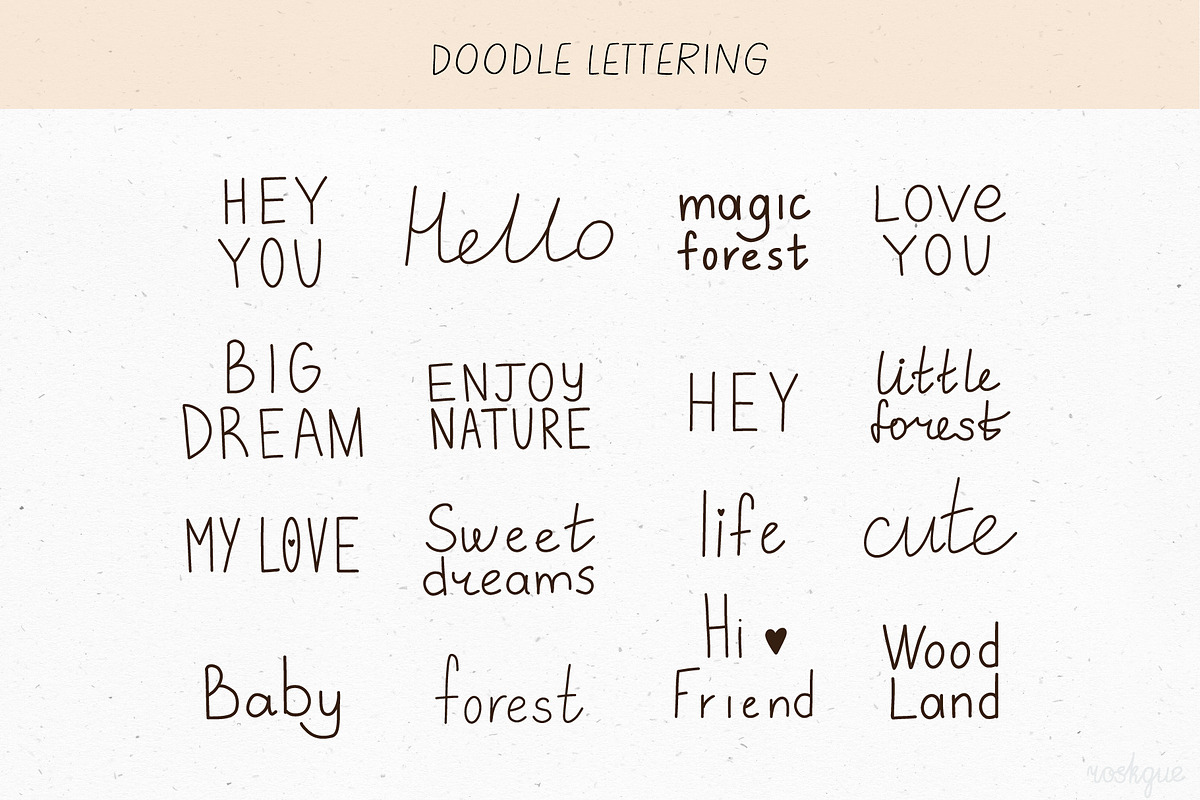 DOODLE LETTERING
HEY
YOU
Hello
magic
forest
LOVe
YOU
BIG
DREAM
ENJOY
NATURE
HEY
little
forest
MY LOVE
Sweet
dreams
life
cute
Baby
forest
Hi ♥
Friend
Wood
Land